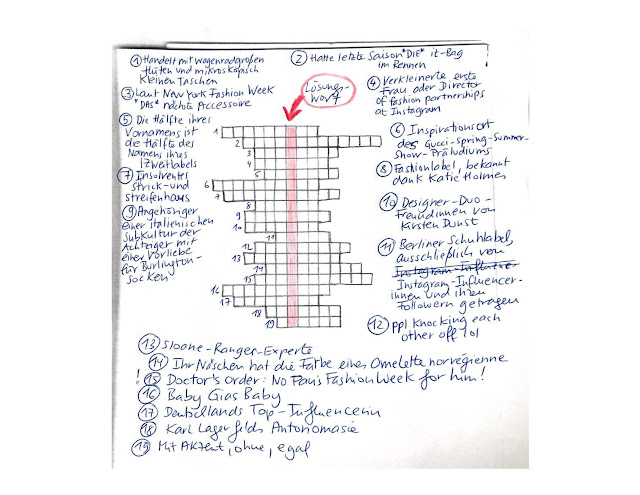 ① Handelt mit wagenradgroßen
Hüten und mikroskopisch
kleinen Taschen
② Hatte letzte Saison *DIE* it-Bag
im Rennen
③ Laut New York Fashion Week
*DAS* nächste Accessoire
Lösungs-
wort
④ Verkleinerte erste
Frau oder Director
of fashion partnerships
at Instagram
⑤ Die Hälfte ihres
Vornamens ist
die Hälfte des
Namens ihres
Zweitlabels
⑥ Inspirationsort
des Gucci-Spring-Summer-
Show-Präludiums
⑦ Insolventes
Strick- und
Streifenhaus
⑧ Fashionlabel, bekannt
dank Katie Holmes
⑨ Angehöriger
einer italienischen
Subkultur der
Achtziger mit
einer Vorliebe
für Burlington-
Socken
⑩ Designer-Duo-
Freundinnen von
Kirsten Dunst
⑪ Berliner Schuhlabel,
ausschließlich von
Instagram-Influence
Instagram-Influencer-
innen und ihren
Followern getragen
⑫ ppl knocking each
other off lol
1
2
3
4
5
6
7
8
9
10
11
12
13
14
15
16
17
18
19
⑬ Sloane-Ranger-Experte
⑭ Ihr Näschen hat die Farbe einer Omelette norvégienne
! ⑮ Doctor's Order: No Paris Fashion Week for him!
⑯ Baby Gias Baby
⑰ Deutschlands Top-Influencerin
⑱ Karl Lagerfelds Antonomasie
⑲ Mit Akzent, ohne, egal